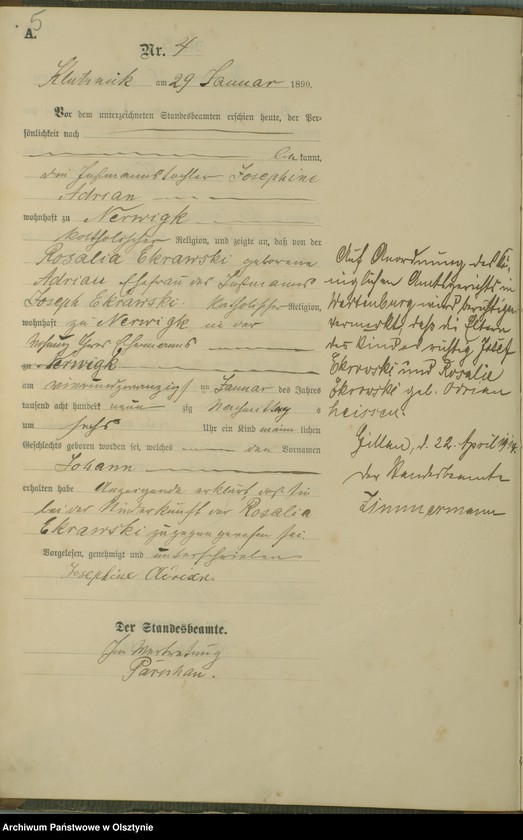 5
A.
Nr. 4
am 29 Januar 1890.
Vor dem unterzeichneten Standesbeamten erschien heute, der Per-
sönlichkeit nach
kannt,
die Josephine
Adrian
wohnhaft zu Nerwigk
katholischer Religion, und zeigte an, daß von der
Rosalia Ekrawski geborene
Adrian Ehefrau des
Joseph Ekrawski katholischer Religion,
wohnhaft zu Nerwigk in der
Wohnung ihres Ehemanns
zu Nerwigk
am vierundzwanzigsten Januar des Jahres
tausend acht hundert neunzig Nachmittag
um sechs Uhr ein Kind männlichen
Geschlechts geboren worden sei, welches den Vornamen
Johann
erhalten habe Anzeigende erklärt, daß sie
bei der Niederkunft der Rosalia
Ekrawski zugegen gewesen sei.
Vorgelesen, genehmigt und unterschrieben
Josephine Adrian
Der Standesbeamte.
In Vertretung
Auf Anordnung des Kö-
niglichen Amtsgerichts in
Wartenburg wird berichtigend
vermerkt, daß die Eltern
des Kindes richtig Josef
Ekrowski und Rosalie
Ekrowski geb. Adrian
heissen.
Gillau, d. 22. April 1914.
Der Standesbeamte
Zimmermann
Archiwum Państwowe w Olsztynie